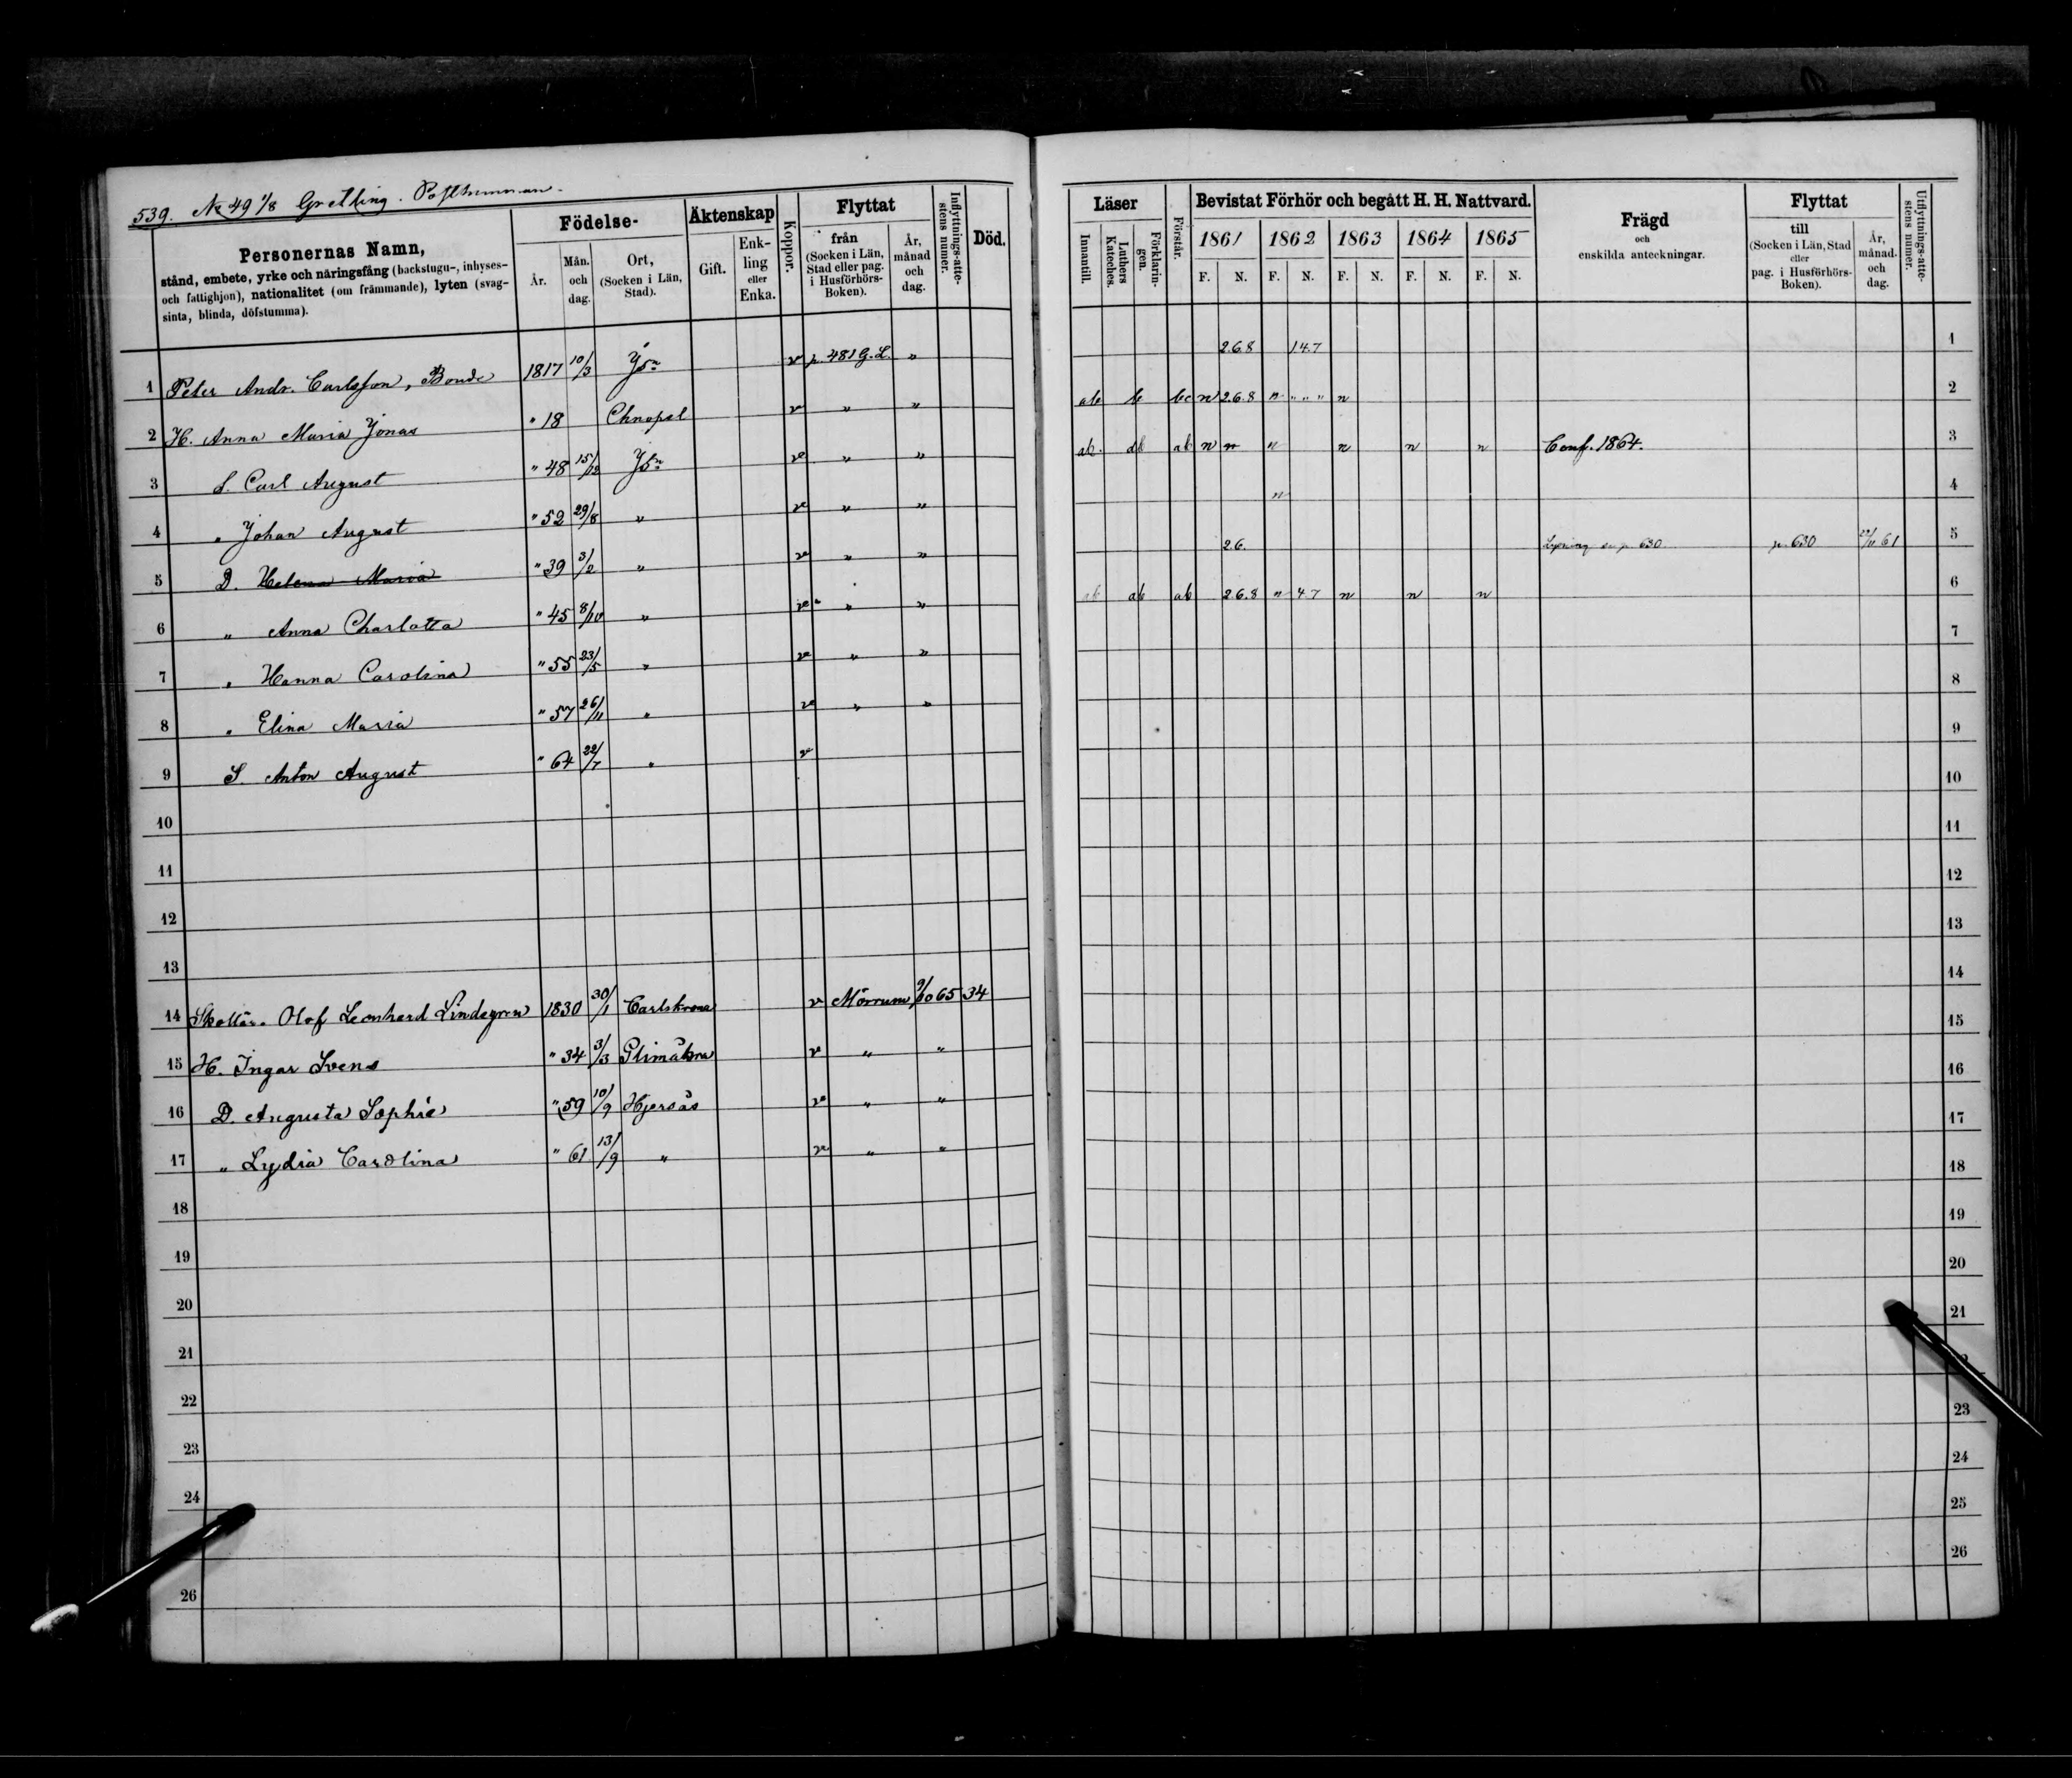 539. No 49 1/8 Gretting.
Personernas Namn,
stånd, embete, yrke och näringsfång (backstugu-, inhyses-
och fattighjon), nationalitet (om främmande), lyten (svag-
sinta, blinda, döfstumma).
Födelse-
År.
Mån.
och
dag.
Ort,
(Socken i Län,
Stad).
Äktenskap
Gift.
Enk-
ling
eller
Enka.
Koppor.
Flyttat
från
(Socken i Län,
Stad eller pag.
i Husförhörs-
Boken).
År,
månad
och
dag.
Inflyttnings-atte-
stens numer.
Död.
Läser
Innantill.
Luthers
Kateches.
Förklarin-
gen.
Förstår.
Bevistat Förhör och begått H. H. Nattvard.
1861 1862 1863 1864 1865
F. N. F. N. F. N. F. N. F. N.
Frägd
och
enskilda anteckningar.
Flyttat
till
(Socken i Län, Stad
eller
pag. i Husförhörs-
Boken).
År,
månad.
och
dag.
Utflyttnings-atte-
stens numer.
1 Peter Andr. Carlsson, Bonde 1817 10/3 v p. 481 G. L. " 2.6.8 14.7 1
2 H. Anna Maria Jonas " 18 Chnopel v " " ab b bc n 2.6.8 n " " " n 2
3 S. Carl August " 48 15/12 v " " ab. ab ab n n n n n n Conf. 1864. 3
4 " Johan August " 52 29/8 " v " " n 4
5 D. Helena Maria " 39 3/2 " v " " 2.6. Lysning se p. 630 p. 630 22/11 61 5
6 " Anna Charlotta " 45 8/10 " v " " ab ab ab 2.6.8 n 4.7 n n n 6
7 " Hanna Carolina " 55 23/5 " v " " 7
8 " Elina Maria " 57 26/11 " v " " 8
9 S. Anton August " 64 22/7 " v 9
10 10
11 11
12 12
13 13
14 Skollär. Olof Leonhard Lindegren 1830 30/1 Carlskrona v Mörrum 9/10 65 34 14
15 H. Ingar Svens " 34 3/3 Glimåkra v " " 15
16 D. Augusta Sophie " 59 10/9 Hjersås v " " 16
17 " Lydia Carolina " 61 13/9 " v " " 17
18 18
19 19
20 20
21 21
22
23 23
24 24
25
26 26